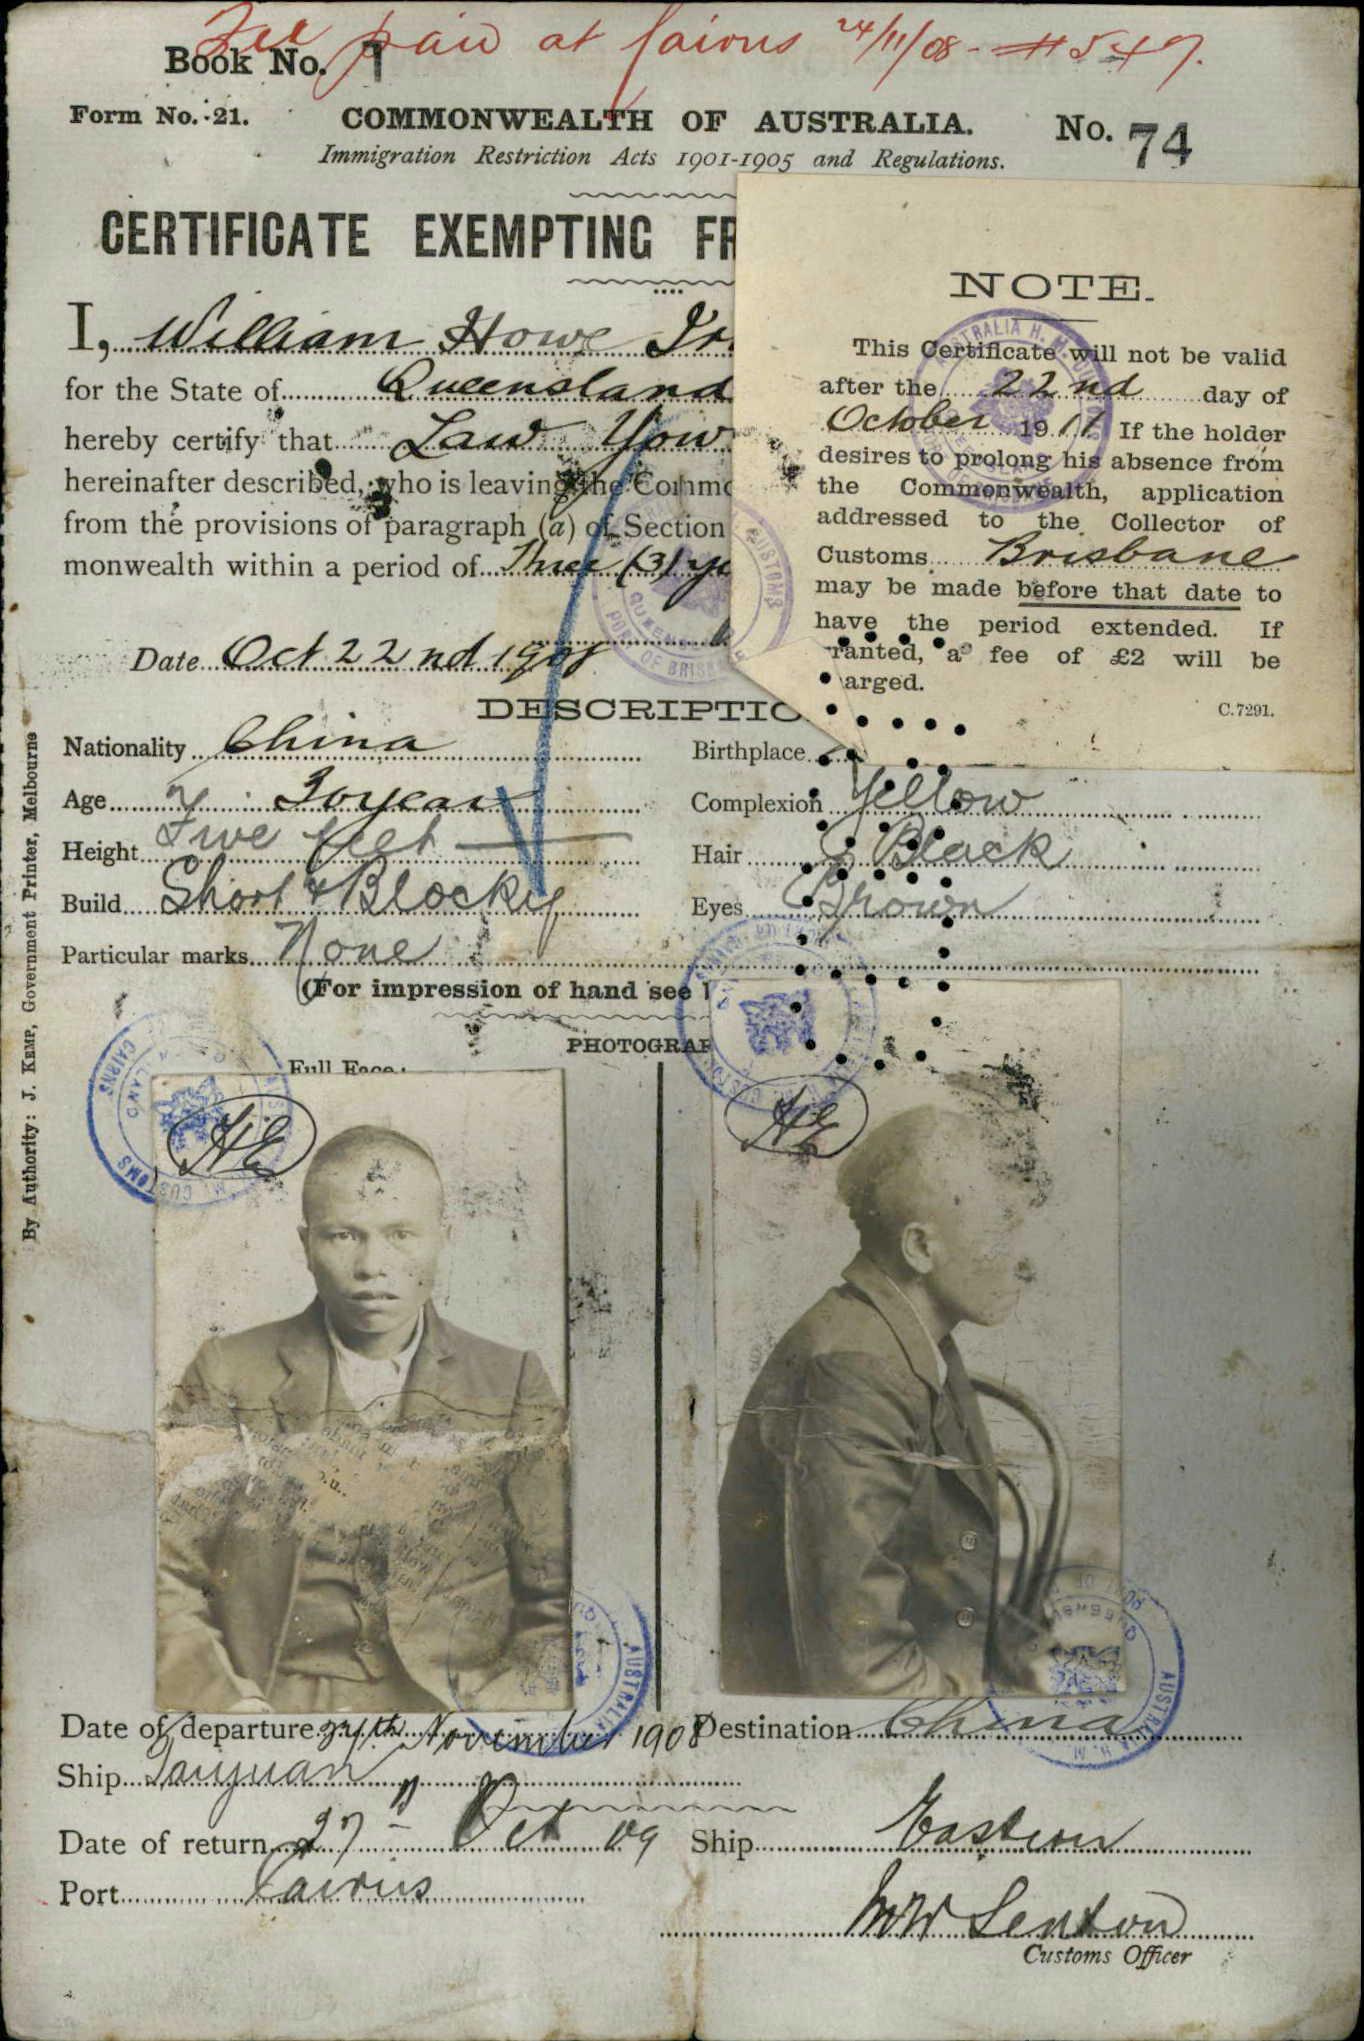 Fee paid at Cairns 24/11/08 - #547.
Book No. 1
Form No. 21. COMMONWEALTH OF AUSTRALIA. No. 74
Immigration Restriction Acts 1901-1905 and Regulations.
CERTIFICATE EXEMPTING FR
I, William Howe
for the State of Queensland
hereby certify that Law Yow
hereinafter described, who is leaving the Commo
from the provisions of paragraph (a) of Section
monwealth within a period of Three (3) ye
Date Oct 22nd 1908
NOTE.
This Certificate will not be valid
after the 22nd day of
October 1911 If the holder
desires to prolong his absence from
the Commonwealth, application
addressed to the Collector of
Customs Brisbane
may be made before that date to
have the period extended. If
ranted, a fee of £2 will be
arged.
C.7291.
DESCRIPTIO
Nationality China Birthplace
Age 30 years Complexion Yellow
Height Five feet Hair Black
Build Short & Blocky Eyes Brown
Particular marks None
(For impression of hand see
PHOTOGRAP
Full Face:
HE
HE
Date of departure 24th November 1908 Destination China
Ship Taiyuan
Date of return 27 - Oct 09 Ship Eastern
Port Cairns
Customs Officer
By Authority: J. KEMP, Government Printer, Melbourne
CAIRNS
CUSTOMS
AUSTRALIA